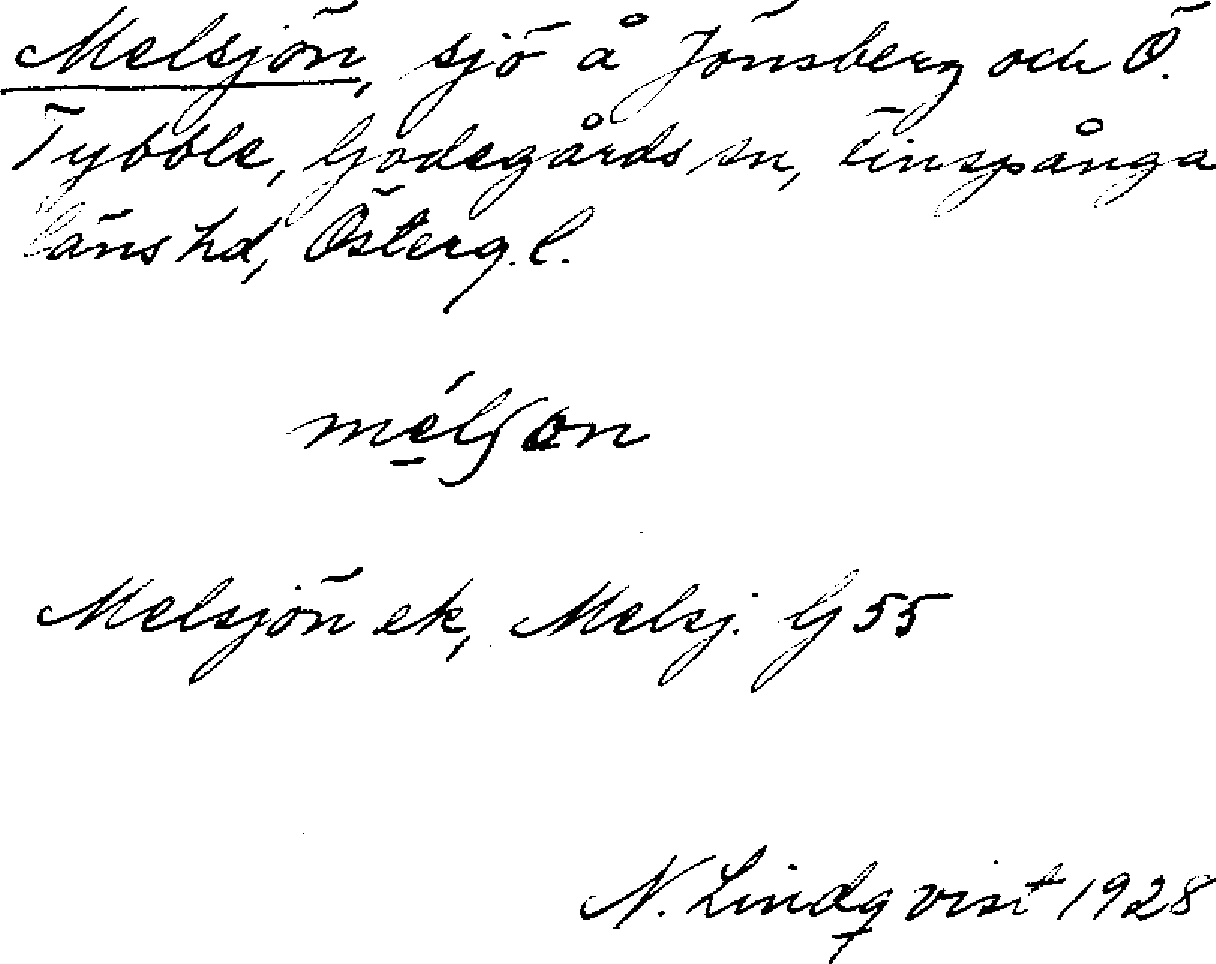 Melsjön, sjö å Jönsberg och Ö.
Tybble, Godegårds sn, Finspånga
läns hd, Österg. l.
mélʃɷn
Melsjön ek, Melsj. G 55
N. Lindqvist 1928